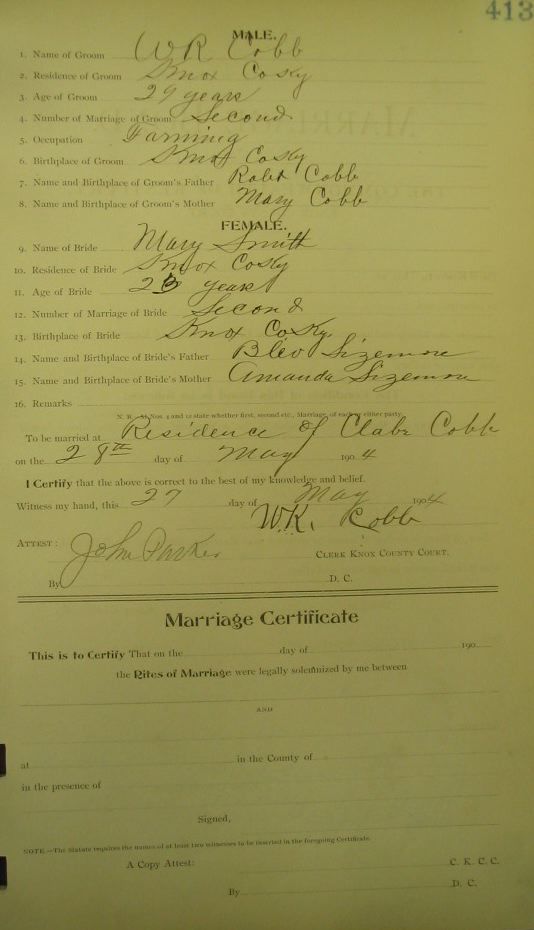 413
MALE.
1. Name of Groom W R Cobb
2. Residence of Groom Knox Co Ky
3. Age of Groom 29 years
4. Number of Marriage of Groom Second
5. Occupation Farming
6. Birthplace of Groom Knox Co Ky
7. Name and Birthplace of Groom's Father Robt Cobb
8. Name and Birthplace of Groom's Mother Mary Cobb
FEMALE.
9. Name of Bride Mary Smith
10. Residence of Bride Knox Co Ky
11. Age of Bride 23 years
12. Number of Marriage of Bride Second
13. Birthplace of Bride Knox Co Ky.
14. Name and Birthplace of Bride's Father Blev Sizemore
15. Name and Birthplace of Bride's Mother Amanda Sizemore
16. Remarks
N. B.—At Nos. 4 and 12 state whether first, second etc., Marriage, of each or either party.
To be married at Residence of Clabe Cobb
on the 28th day of May 1904
I Certify that the above is correct to the best of my knowledge and belief.
Witness my hand, this 27 day of May 1904
W.R. Cobb
ATTEST: John Parker
CLERK KNOX COUNTY COURT.
By D. C.
Marriage Certificate
This is to Certify That on the day of 190
the Rites of Marriage were legally solemnized by me between
AND
at in the County of
in the presence of
Signed,
NOTE.—The Statute requires the names of at least two witnesses to be inserted in the foregoing Certificate.
A Copy Attest: C. K. C. C.
By D. C.